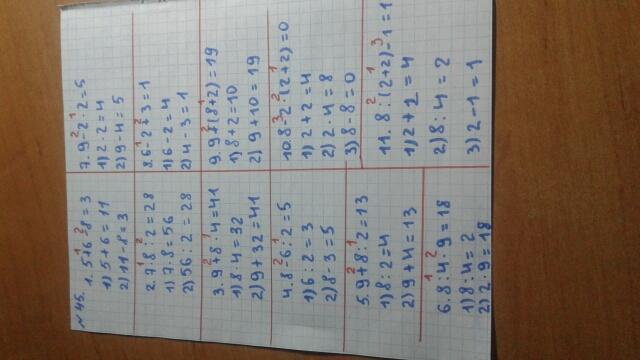 № 45. 1. 5+6-8=3
1) 5+6=11
2) 11-8=3
2. 7·8:2=28
1) 7·8=56
2) 56:2=28
3. 9+8·4=41
1) 8·4=32
2) 9+32=41
4. 8-6:2=5
1) 6:2=3
2) 8-3=5
5. 9+8:2=13
1) 8:2=4
2) 9+4=13
6. 8:4·9=18
1) 8:4=2
2) 2·9=18
7. 9-2·2=5
1) 2·2=4
2) 9-4=5
8. 6-2-3=1
1) 6-2=4
2) 4-3=1
9. 9+(8+2)=19
1) 8+2=10
2) 9+10=19
10. 8-2·(2+2)=0
1) 2+2=4
2) 2·4=8
3) 8-8=0
11. 8:(2+2)-1=1
1) 2+2=4
2) 8:4=2
3) 2-1=1